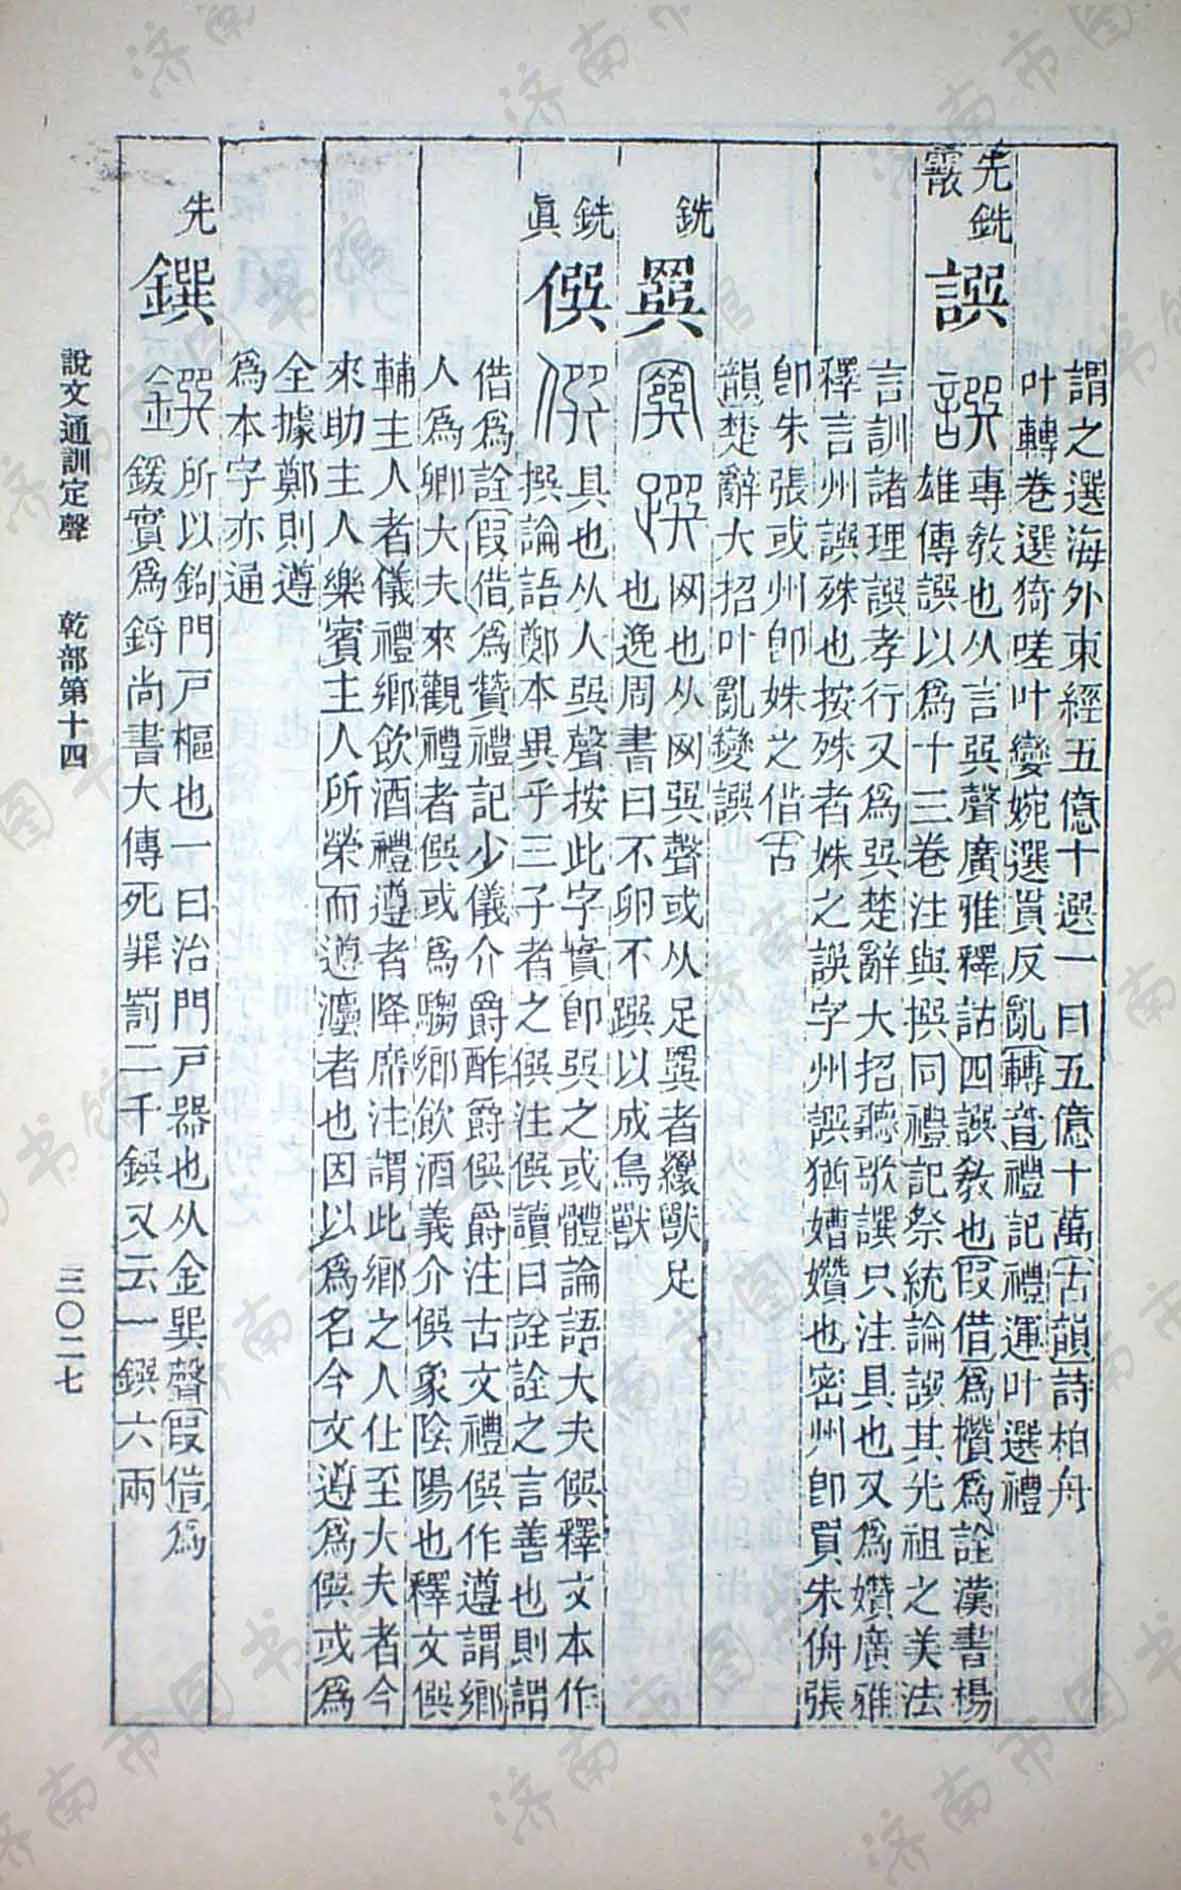 謂之選海外東經五億十選一曰五億十萬古韻詩柏舟
叶轉卷選猗嗟叶孌婉選貫反亂轉音禮記禮運叶選禮
先銑
霰
譔
專敎也从言巽聲廣雅釋詁四譔敎也叚借爲欑爲詮漢書楊
雄傳譔以爲十三卷注與撰同禮記祭統論譔其先祖之美法
言訓諸理譔孝行又爲巽楚辭大招聽歌譔只注具也又爲孉廣雅
釋言州譔殊也按殊者姝之誤字州譔猶嬥孉也密州卽買朱侜張
卽朱張或州卽姝之借古
韻楚辭大招叶亂變譔
銑
㔵
网也从网巽聲或从足巽者纕獸足
也逸周書曰不卵不蹼以成鳥獸
銑
眞
僎
具也从人巽聲按此字實卽巽之或體論語大夫僎釋文本作
撰論語鄭本異乎三子者之僎注僎讀曰詮詮之言善也則謂
借爲詮叚借爲贊禮記少儀介爵酢爵僎爵注古文禮僎作遵謂鄉
人爲卿大夫來觀禮者僎或爲騶鄉飲酒義介僎象陰陽也釋文僎
輔主人者儀禮鄉飲酒禮遵者降席注謂此鄉之人仕至大夫者今
來助主人樂賓主人所榮而遵灋者也因以爲名今文遵爲僎或爲
全據鄭則遵
爲本字亦通
先
鐉
所以鉤門戸樞也一曰治門戸器也从金巽聲叚借爲
鍰實爲鋝尚書大傳死罪罰二千鐉又云一鐉六兩
說文通訓定聲 乾部第十四 三〇二七